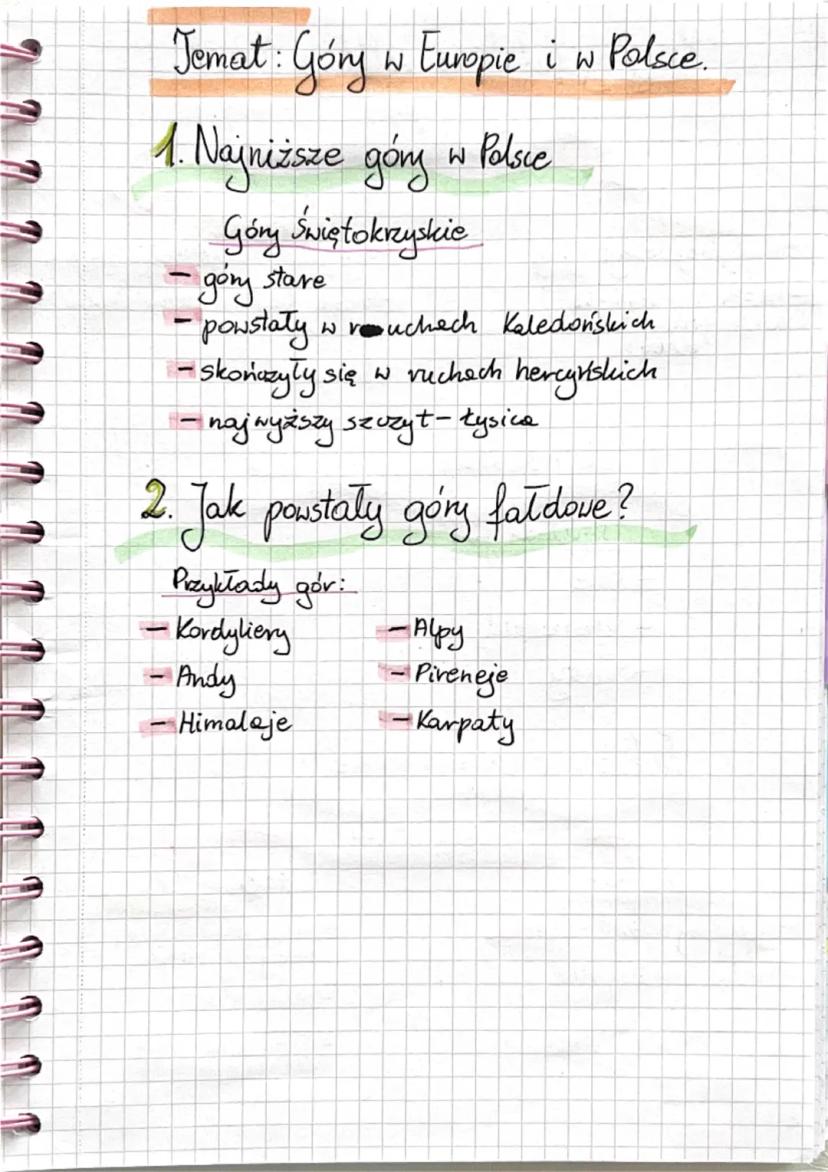 Temat: Góry w Europie i w Polsce.
1. Najniższe góry w Polsce
Góry Świętokrzyskie
- góry stare
- powstały w ruchach Kaledońskich
- skończyły się w ruchach hercyńskich
- najwyższy szczyt - Łysica
2. Jak powstały góry fałdowe?
Przykłady gór:
- Kordyliery - Alpy
- Andy - Pireneje
- Himalaje - Karpaty